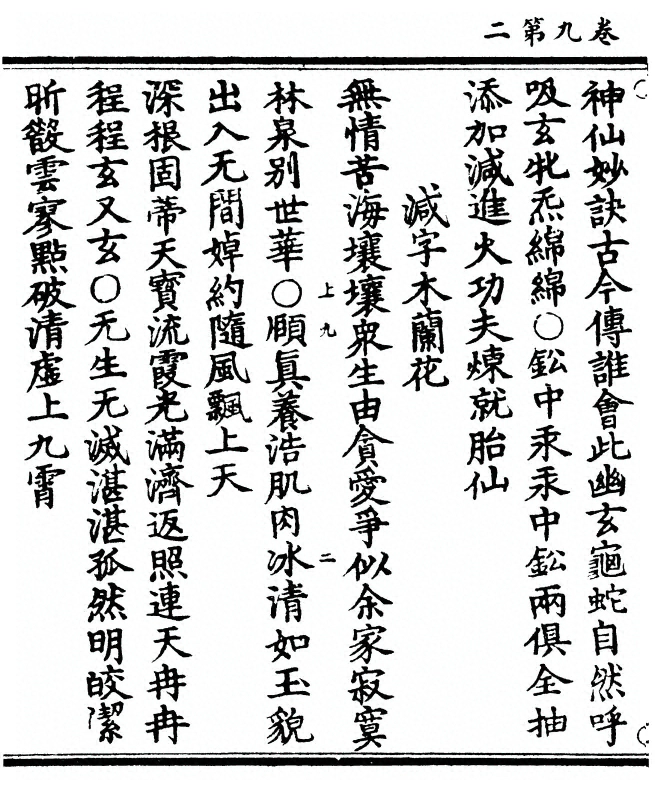 二第九卷
神仙妙訣古今傳誰會此幽玄龜蛇自然呼
吸玄牝炁綿綿○鈆中汞汞中鈆兩俱全抽
添加減進火功夫煉就胎仙
減字木蘭花
無情苦海壤壤衆生由貪愛爭似余家寂寞
林泉别世華○頤真養浩肌肉冰清如玉貌
出入无間婥約隨風飄上天
深根固蒂天寳流霞光滿濟返照連天冉冉
程程玄又玄○无生无滅湛湛孤然明皎潔
昕㲉雲寥點破清虛上九霄
上九
二